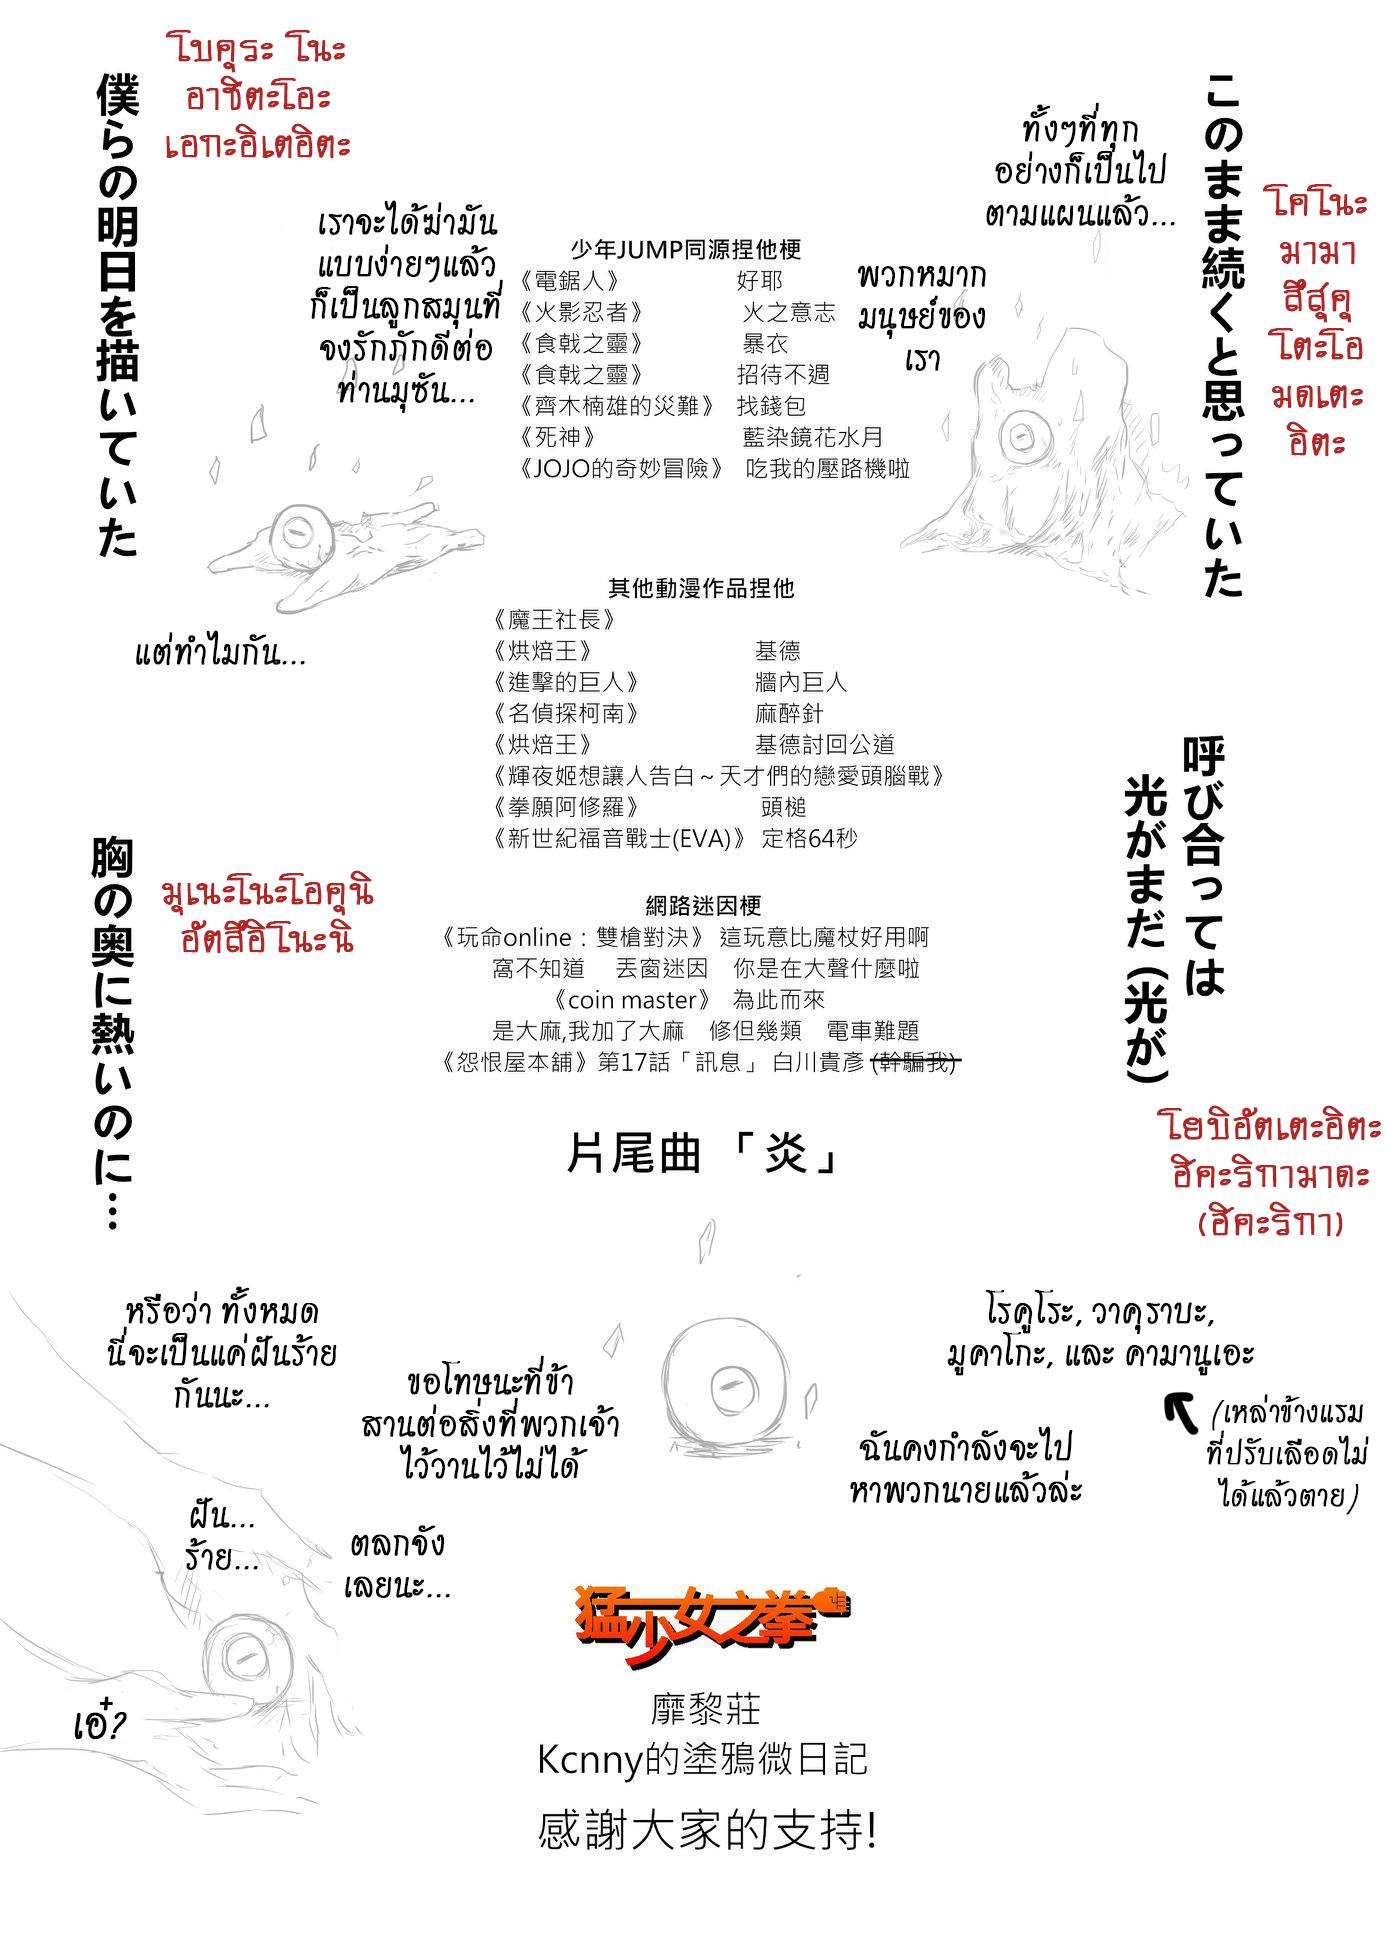 このまま続くと思っていた
โคโนะ
มามา
สึสุคุ
โตะโอ
มดเตะ
อิตะ
ทั้งๆที่ทุก
อย่างก็เป็นไป
ตามแผนแล้ว...
พวกหมาก
มนุษย์ของ
เรา
僕らの明日を描いていた
โบคุระ โนะ
อาชิตะโอะ
เอกะอิเตอิตะ
เราจะได้ฆ่ามัน
แบบง่ายๆแล้ว
ก็เป็นลูกสมุนที่
จงรักภักดีต่อ
ท่านมุซัน...
แต่ทำไมกัน...
少年JUMP同源捏他梗
《電鋸人》 好耶
《火影忍者》 火之意志
《食戟之靈》 暴衣
《食戟之靈》 招待不週
《齊木楠雄的災難》 找錢包
《死神》 藍染鏡花水月
《JOJO的奇妙冒險》 吃我的壓路機啦
其他動漫作品捏他
《魔王社長》
《烘焙王》 基德
《進擊的巨人》 牆內巨人
《名偵探柯南》 麻醉針
《烘焙王》 基德討回公道
《輝夜姬想讓人告白～天才們的戀愛頭腦戰》
《拳願阿修羅》 頭槌
《新世紀福音戰士(EVA)》 定格64秒
網路迷因梗
《玩命online：雙槍對決》 這玩意比魔杖好用啊
窩不知道 丟窗迷因 你是在大聲什麼啦
《coin master》 為此而來
是大麻,我加了大麻 修但幾類 電車難題
《怨恨屋本舖》第17話「訊息」 白川貴彥 (幹騙我)
片尾曲 「炎」
呼び合っては
光がまだ (光が)
โยบิอัตเตะอิตะ
ฮิคะริกามาดะ
(ฮิคะริกา)
胸の奥に熱いのに…
มุเนะโนะโอคุนิ
อัตสึอิโนะนิ
โรคูโระ, วาคุราบะ,
มูคาโกะ, และ คามานูเอะ
(เหล่าข้างแรม
ที่ปรับเลือดไม่
ได้แล้วตาย)
ฉันคงกำลังจะไป
หาพวกนายแล้วล่ะ
ขอโทษนะที่ข้า
สานต่อสิ่งที่พวกเจ้า
ไว้วานไว้ไม่ได้
หรือว่า ทั้งหมด
นี่จะเป็นแค่ฝันร้าย
กันนะ...
ฝัน...
ร้าย...
ตลกจัง
เลยนะ...
เอ๋?
猛少女之拳
靡黎莊
Kcnny的塗鴉微日記
感謝大家的支持!